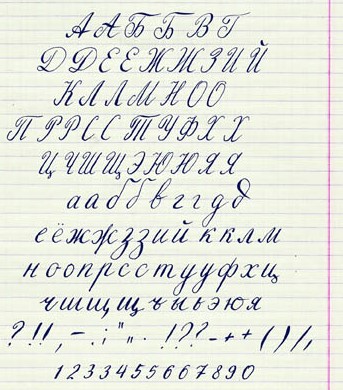 А А Б Б В Г
Д Д Е Е Ж Ж З И Й
К Л Л М Н О О
П Р Р С С Т У Ф Х Х
Ц Ч Ш Щ Э Ю Ю Я Я
а а б б в г г д д
е ё ж ж з з и й к к л м
н о о п р с с т у у ф х щ
ч ш щ щ ъ ы ь э ю я
? ! ! , - . ; " " . . ! ? ? - + + ( ) / ,
1 2 3 3 4 5 5 6 6 7 8 9 0